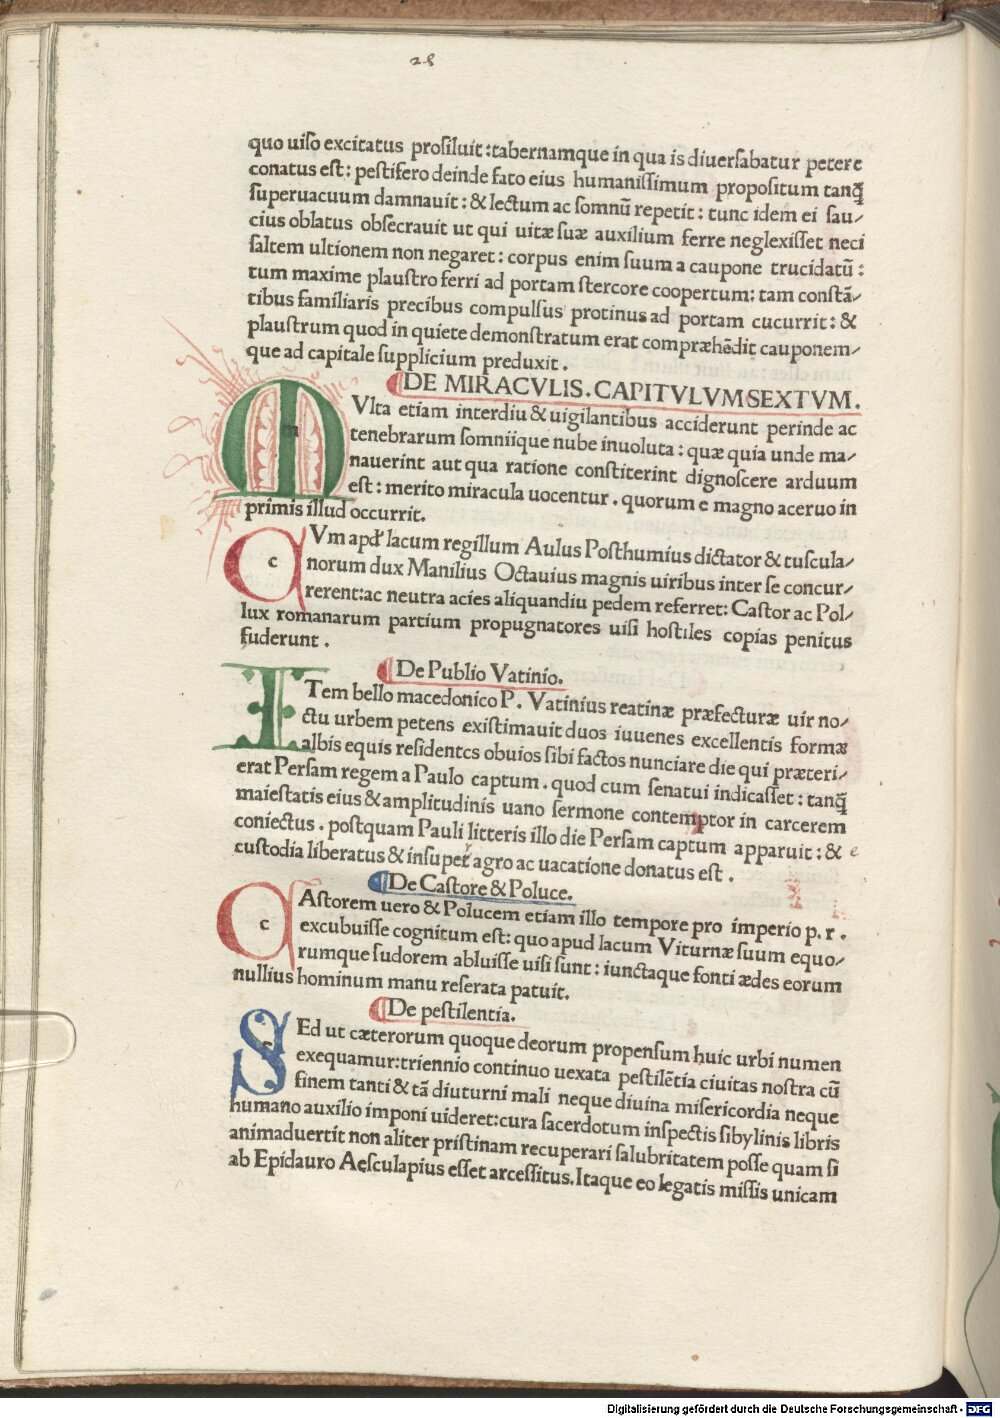 28
quo uiſo excitatus proſiluit:tabernamque in qua is diuerſabatur petere
conatus eſt: peſtifero deinde fato eius humaniſſimum propoſitum tanꝗ̃
ſuperuacuum damnauit: & lectum ac ſomnũ repetit: tunc idem ei ſau/
cius oblatus obſecrauit ut qui uitæ ſuæ auxilium ferre neglexiſſet neci
ſaltem ultionem non negaret: corpus enim ſuum a caupone trucidatũ:
tum maxime plauſtro ferri ad portam ſtercore coopertum: tam conſtã/
tibus familiaris precibus compulſus protinus ad portam cucurrit: &
plauſtrum quod in quiete demonſtratum erat compræhẽdit cauponem/
que ad capitale ſupplicium preduxit.
DE MIRACVLIS. CAPITVLVM SEXTVM.
MVlta etiam interdiu & uigilantibus acciderunt perinde ac
tenebrarum ſomniique nube inuoluta: quæ quia unde ma/
nauerint aut qua ratione conſtiterint dignoſcere arduum
eſt: merito miracula uocentur. quorum e magno aceruo in
primis illud occurrit.
CVm apđ lacum regillum Aulus Poſthumius dictator & tuſcula/
norum dux Manilius Octauius magnis uiribus inter ſe concur/
rerent:ac neutra acies aliquandiu pedem referret: Caſtor ac Pol/
lux romanarum partium propugnatores uiſi hoſtiles copias penitus
fuderunt.
De Publio Vatinio.
ITem bello macedonico P. Vatinius reatinæ præfecturæ uir no/
ctu urbem petens exiſtimauit duos iuuenes excellentis formæ
albis equis reſidentes obuios ſibi factos nunciare die qui præteri/
erat Perſam regem a Paulo captum. quod cum ſenatui indicaſſet: tanꝗ̃
maieſtatis eius & amplitudinis uano ſermone contemptor in carcerem
coniectus. poſtquam Pauli litteris illo die Perſam captum apparuit: & e
cuſtodia liberatus & inſuper agro ac uacatione donatus eſt.
De Caſtore & Poluce.
CAſtorem uero & Polucem etiam illo tempore pro imperio p. r.
excubuiſſe cognitum eſt: quo apud lacum Viturnæ ſuum equo/
rumque ſudorem abluiſſe uiſi ſunt: iunctaque fonti ædes eorum
nullius hominum manu reſerata patuit.
De peſtilentia.
SEd ut cæterorum quoque deorum propenſum huic urbi numen
exequamur:triennio continuo uexata peſtilẽtia ciuitas noſtra cũ
finem tanti & tã diuturni mali neque diuina miſericordia neque
humano auxilio imponi uideret:cura ſacerdotum inſpectis ſibylinis libris
animaduertit non aliter priſtinam recuperari ſalubritatem poſſe quam ſi
ab Epidauro Aeſculapius eſſet arceſſitus.Itaque eo legatis miſſis unicam
Digitalisierung gefördert durch die Deutsche Forschungsgemeinschaft - DFG